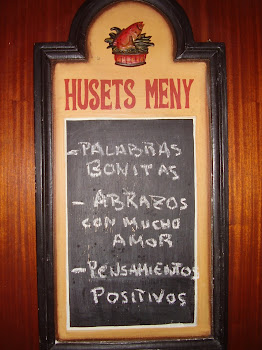 HUSETS MENY
-PALABRAS
BONITAS
- ABRAZOS
CON MUCHO
AMOR
- PENSAMIENTOS
POSITIVOS